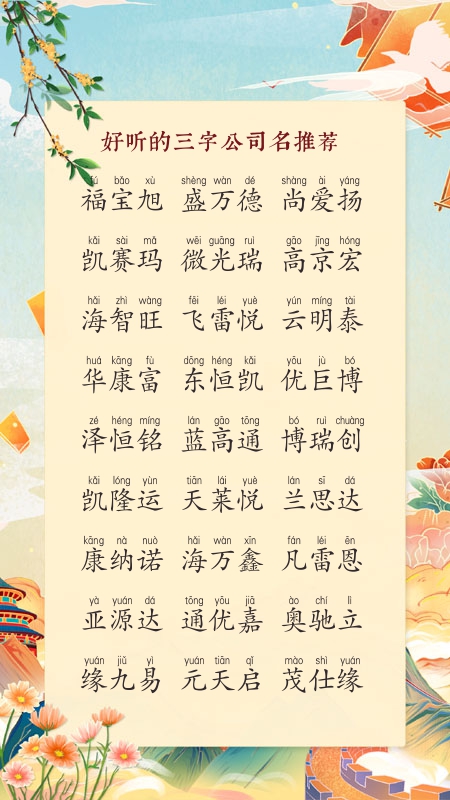 好听的三字公司名推荐
fú bǎo xù shèng wàn dé shàng ài yáng
福宝旭 盛万德 尚爱扬
kǎi sài mǎ wēi guāng ruì gāo jīng hóng
凯赛玛 微光瑞 高京宏
hǎi zhì wàng fēi léi yuè yún míng tài
海智旺 飞雷悦 云明泰
huá kāng fù dōng héng kǎi yōu jù bó
华康富 东恒凯 优巨博
zé héng míng lán gāo tōng bó ruì chuàng
泽恒铭 蓝高通 博瑞创
kǎi lóng yùn tiān lái yuè lán sī dá
凯隆运 天莱悦 兰思达
kāng nà nuò hǎi wàn xīn fán léi ēn
康纳诺 海万鑫 凡雷恩
yà yuán dá tōng yōu jiā ào chí lì
亚源达 通优嘉 奥驰立
yuán jiǔ yì yuán tiān qǐ mào shì yuán
缘九易 元天启 茂仕缘